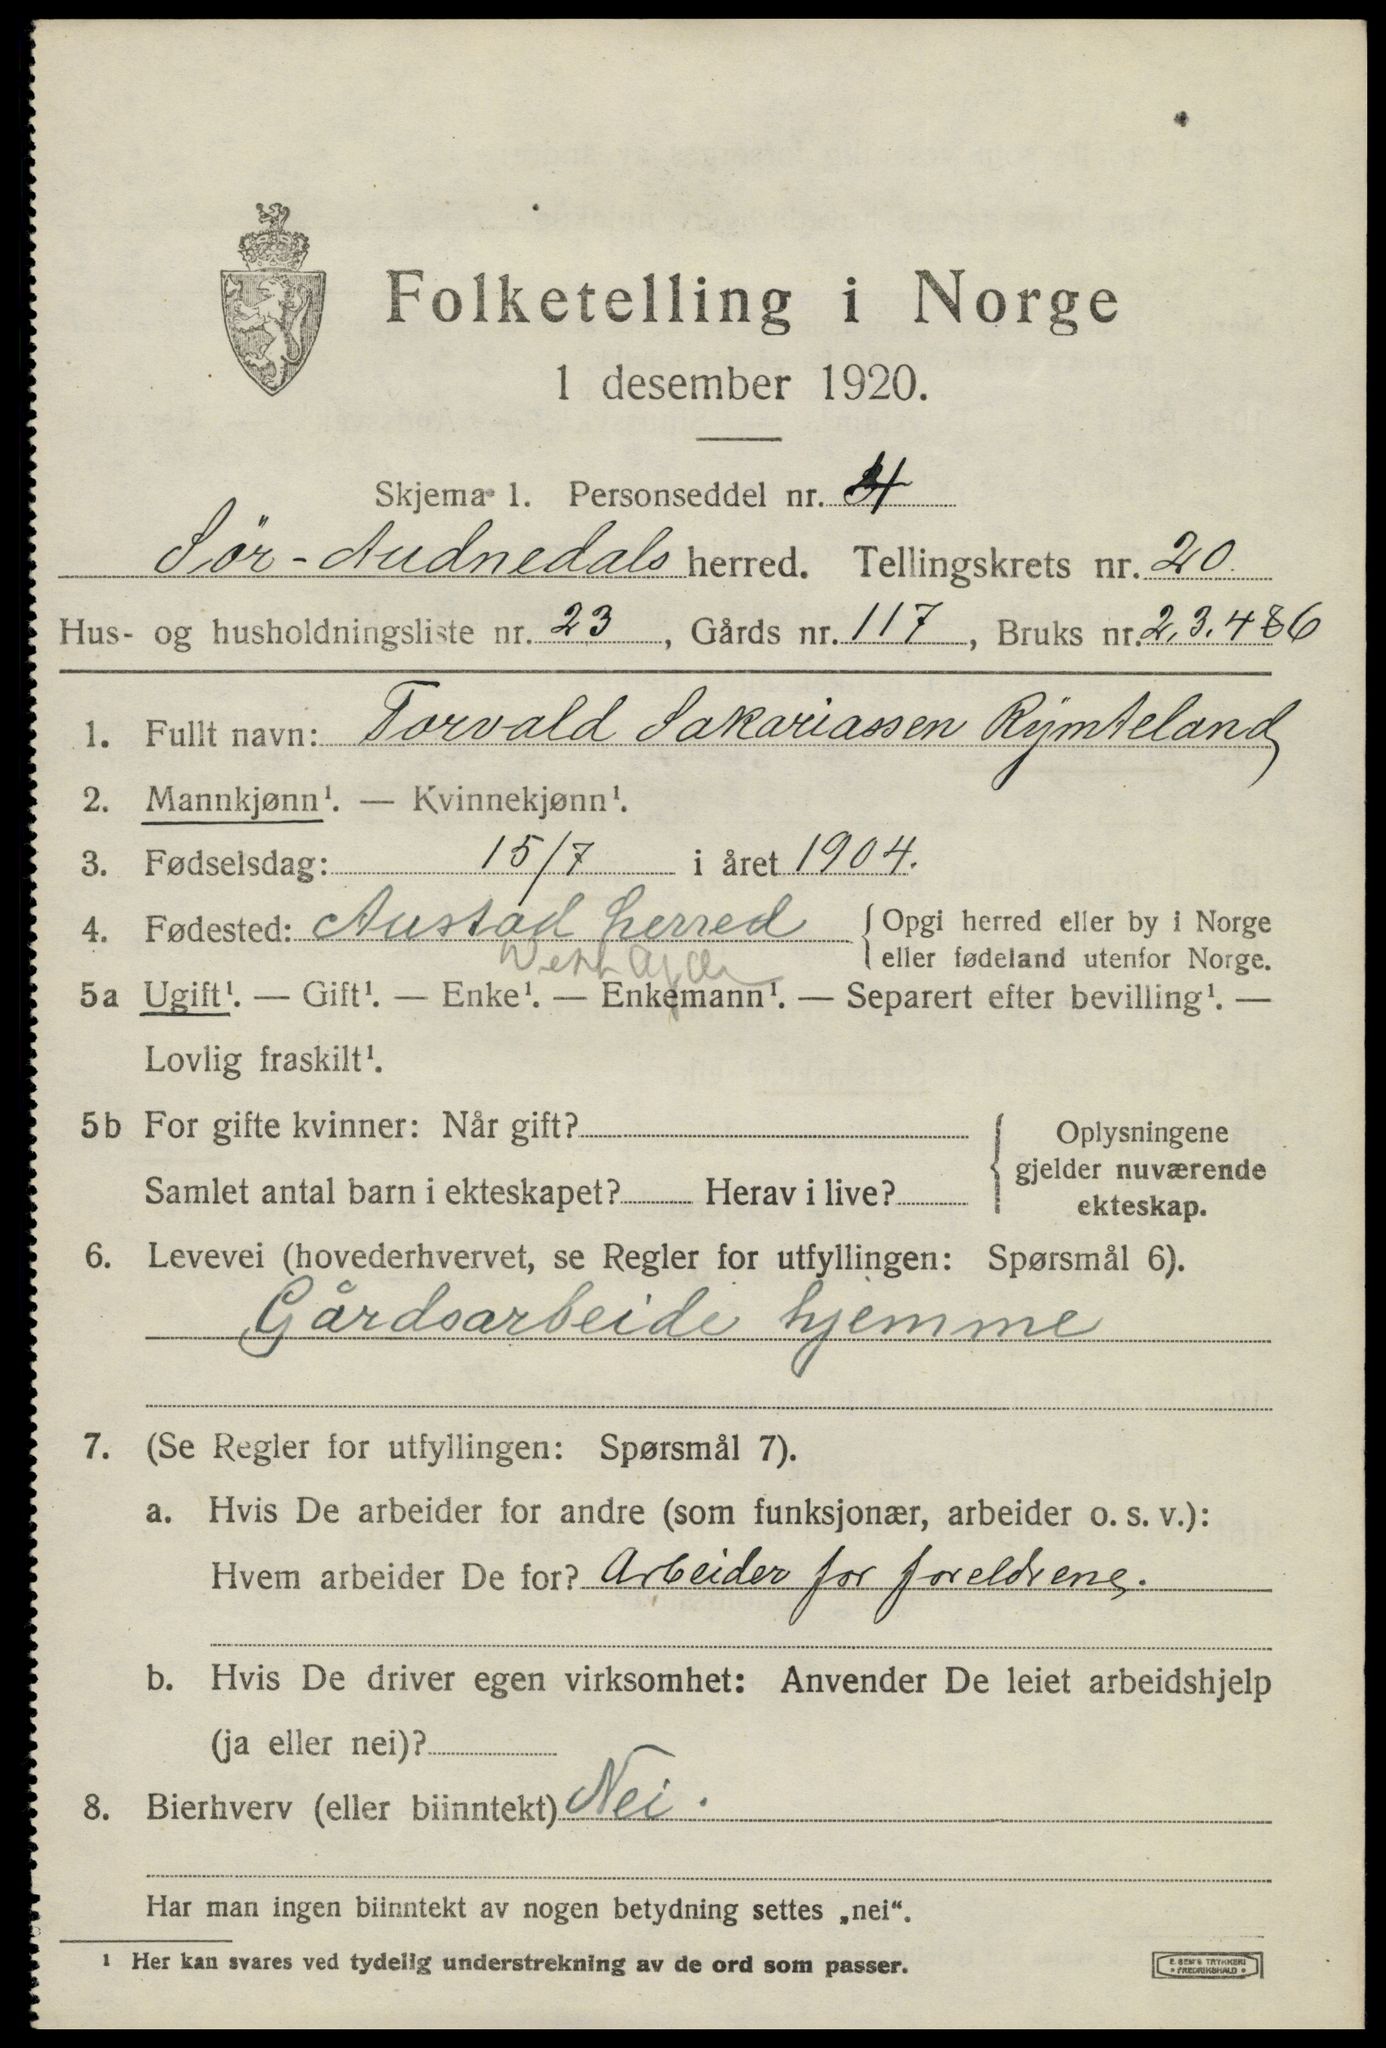 Folketelling i Norge
1 desember 1920.
Skjema 1. Personseddel nr. 4
Sör-Audnedals herred. Tellingskrets nr. 20.
Hus- og husholdningsliste nr. 23, Gårds nr. 117, Bruks nr. 2,3,4 & 6
1. Fullt navn: Torvald Sakariassen Rymteland
2. Mannkjønn¹. — Kvinnekjønn¹.
3. Fødselsdag: 15/7 i året 1904.
4. Fødested: Austad herred { Opgi herred eller by i Norge
eller fødeland utenfor Norge.
Vest Agder
5a Ugift¹. — Gift¹. — Enke¹. — Enkemann¹. — Separert efter bevilling¹. —
Lovlig fraskilt¹.
5b For gifte kvinner: Når gift? { Oplysningene
gjelder nuværende
Samlet antal barn i ekteskapet? Herav i live? ekteskap.
6. Levevei (hovederhvervet, se Regler for utfyllingen: Spørsmål 6).
Gårdsarbeide hjemme
7. (Se Regler for utfyllingen: Spørsmål 7).
a. Hvis De arbeider for andre (som funksjonær, arbeider o. s. v.):
Hvem arbeider De for? Arbeider for foreldrene.
b. Hvis De driver egen virksomhet: Anvender De leiet arbeidshjelp
(ja eller nei)?
8. Bierhverv (eller biinntekt) Nei.
Har man ingen biinntekt av nogen betydning settes „nei“.
¹ Her kan svares ved tydelig understrekning av de ord som passer.
E. SEM'S TRYKKERI
• FREDRIKSHALD •